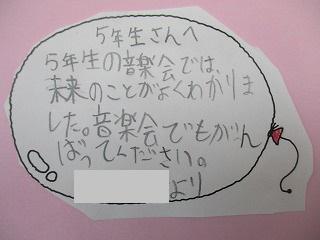 5年生さんへ
5年生の音楽会では、
未来のことがよくわかりま
した。音楽会でもがん
ばってください。
より